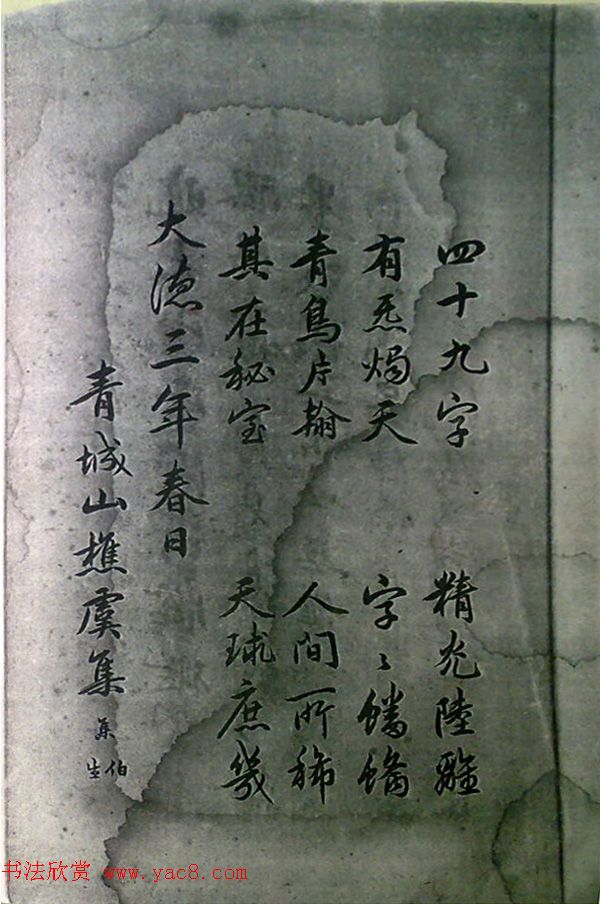 四十九字　精光陸離
有炁燭天　字〻蟠螭
青鳥片翰　人間所稀
其在秘宝　天球庶幾
大德三年春日
青城山樵虞集　集　伯生
书法欣赏 www.yac8.com